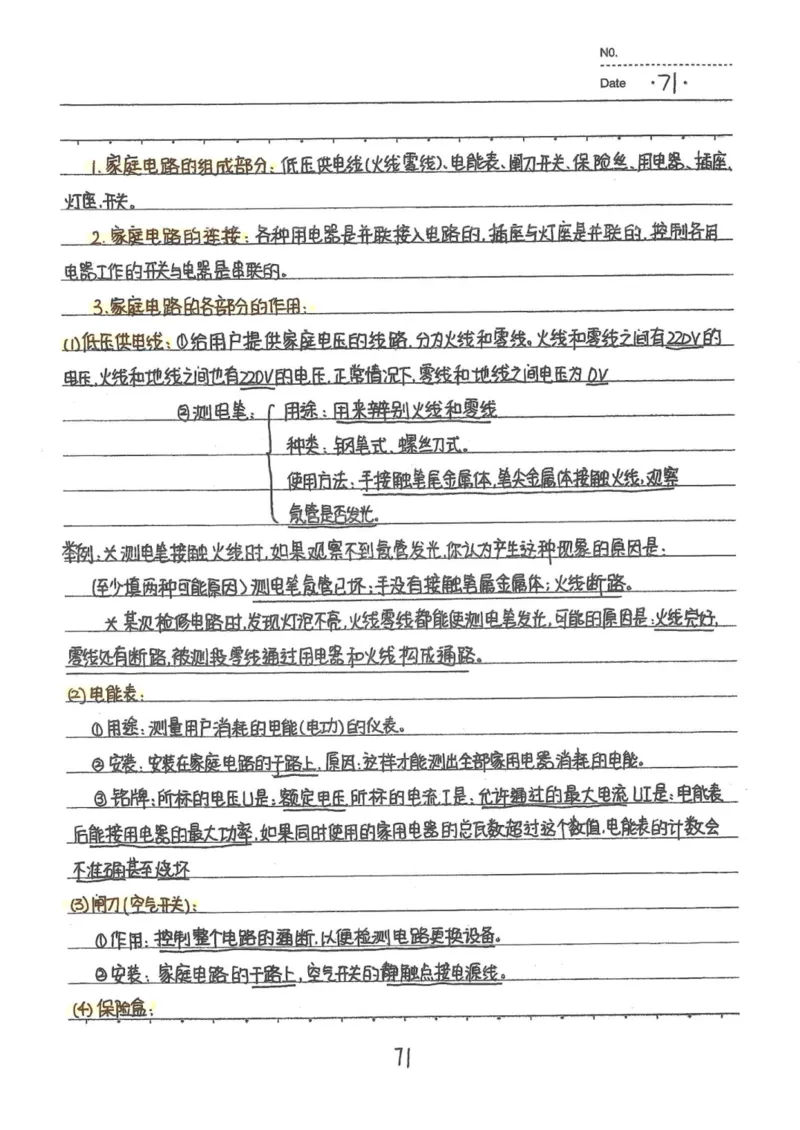 NO.
Date ·71·
1.家庭电路的组成部分:低压供电线(火线零线)、电能表、闸刀开关、保险丝、用电器、插座,
灯座,开关。
2.家庭电路的连接:各种用电器是并联接入电路的,插座与灯座是并联的,控制各用
电器工作的开关与电器是串联的。
3.家庭电路的各部分的作用:
(1)低压供电线:①给用户提供家庭电压的线路,分为火线和零线。火线和零线之间有220V的
电压,火线和地线之间也有220V的电压,正常情况下,零线和地线之间电压为0V
②测电笔: 用途:用来辨别火线和零线
种类:钢笔式,螺丝刀式。
使用方法:手接触笔尾金属体,笔尖金属体接触火线,观察
氖管是否发光。
举例:*测电笔接触火线时,如果观察不到氖管发光,你认为产生这种现象的原因是:
(至少填两种可能原因)测电笔氖管已坏;手没有接触笔尾金属体;火线断路。
*某次检修电路时,发现灯泡不亮,火线零线都能使测电笔发光,可能的原因是:火线完好,
零线处有断路,被测段零线通过用电器和火线构成通路。
(2)电能表:
①用途:测量用户消耗的电能(电功)的仪表。
②安装:安装在家庭电路的干路上,原因:这样才能测出全部家用电器消耗的电能。
③铭牌:所标的电压U是:额定电压,所标的电流I是:允许通过的最大电流UI是:电能表
后能接用电器的最大功率,如果同时使用的家用电器的总瓦数超过这个数值,电能表的计数会
不准确甚至烧坏
(3)闸刀(空气开关):
①作用:控制整个电路的通断,以便检测电路更换设备。
②安装:家庭电路的干路上,空气开关的静触点接电源线。
(4)保险盒:
71